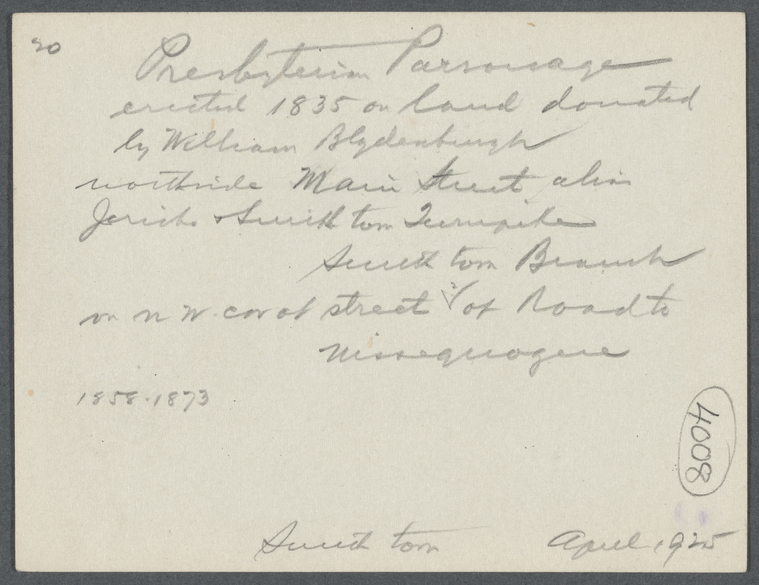 20
Presbyterian Parsonage
erected 1835 on land donated
by William Blydenburgh
northside Main Street alias
Jericho & Smithtown Turnpike
Smithtown Branch
on n w. cor of street & of Road to
Nissequogue
1858-1873
4008
Smithtown April, 1925